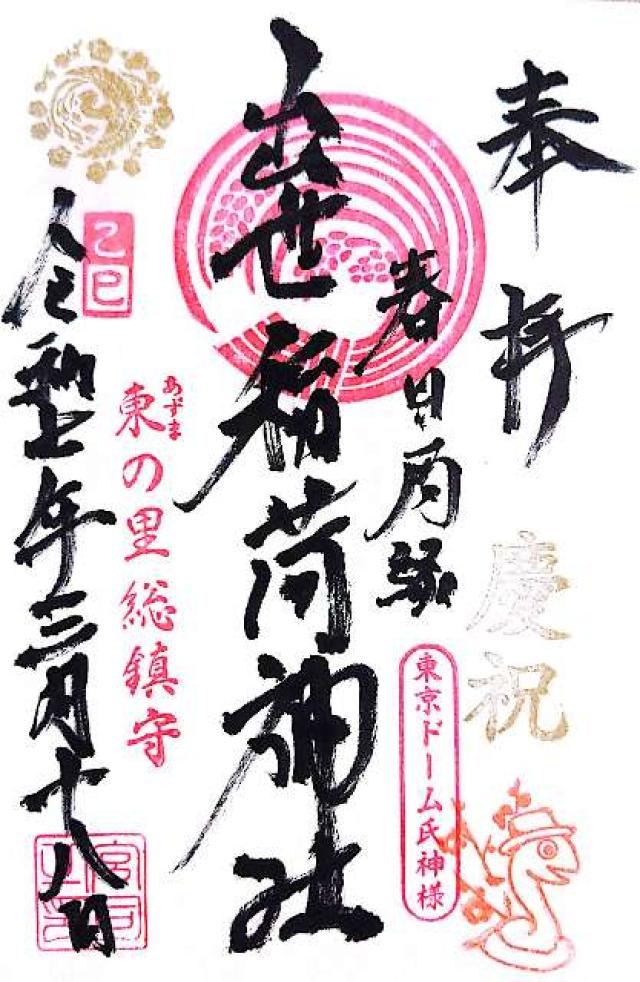 奉拝
慶祝
春日局縁
東京ドーム氏神様
出世稲荷神社
あずま
東の里総鎮守
乙巳
令和七年三月十八日